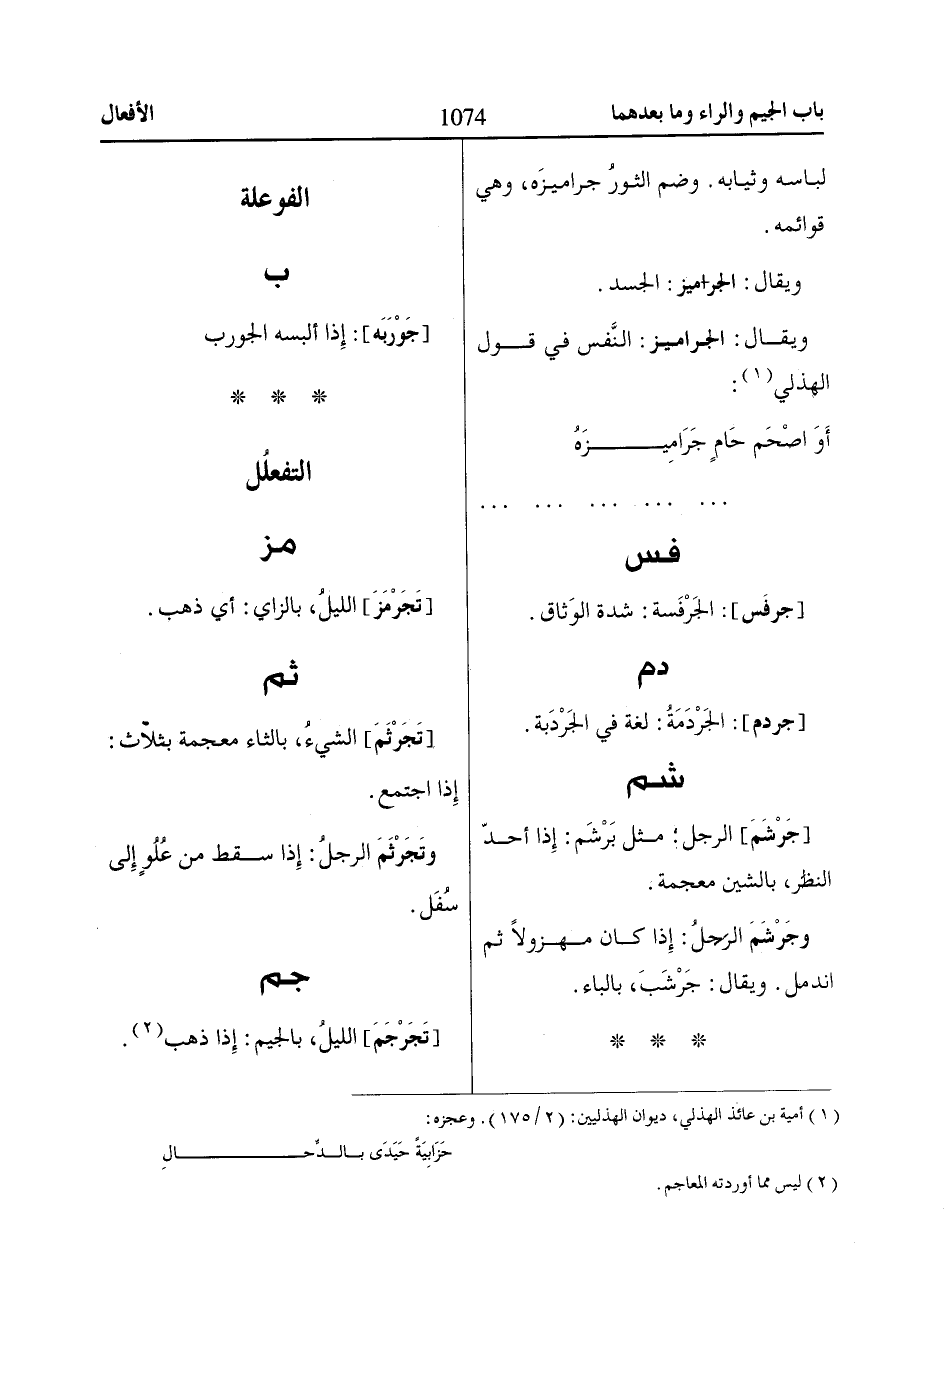 باب الجيم والراء وما بعدهما
1074
الأفعال
لباسه وثيابه. وضم الثورُ جراميزَه، وهي
قوائمه.
ويقال: الجراميز: الجسد.
ويقال: الجراميز: النَّفس في قول
الهذلي(١):
أَوَ اصْحَم حَامٍ جَرَامِيزَهُ
... ... ... ... ...
فس
[جرفَس]: الجَرْفَسة: شدة الوَثاق.
دم
[جردم]: الجَرْدَمَةُ: لغة في الجَرْدَبة.
شم
[جَرْشَمَ] الرجل؛ مثل بَرْشَم: إِذا أحدّ
النظر، بالشين معجمة.
وجَرْشَمَ الرَجلُ: إِذا كان مهزولاً ثم
اندمل. ويقال: جَرْشَبَ، بالباء.
* * *
الفوعلة
ب
[جَوْرَبَه]: إِذا ألبسه الجورب
* * *
التفعلُل
مز
[تَجَرْمَزَ] الليلُ، بالزاي: أي ذهب.
ثم
[تَجَرْثَمَ] الشيءُ، بالثاء معجمة بثلاث:
إِذا اجتمع.
وتَجَرْثَمَ الرجلُ: إِذا سقط من عُلُوٍ إِلى
سُفَل.
جم
[تَجَرْجَمَ] الليلُ، بالجيم: إِذا ذهب(٢).
(١) أمية بن عائذ الهذلي، ديوان الهذليين: (٢/١٧٥). وعجزه:
حَزَابِيَةً حَيَدَى بالدِّحالِ
(٢) ليس مما أوردته المعاجم.